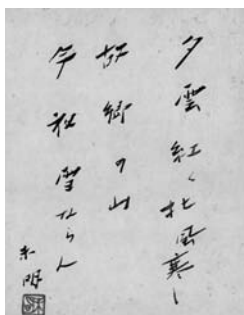 夕雲紅く北風寒し
故郷の山
今初雪ならん
未明